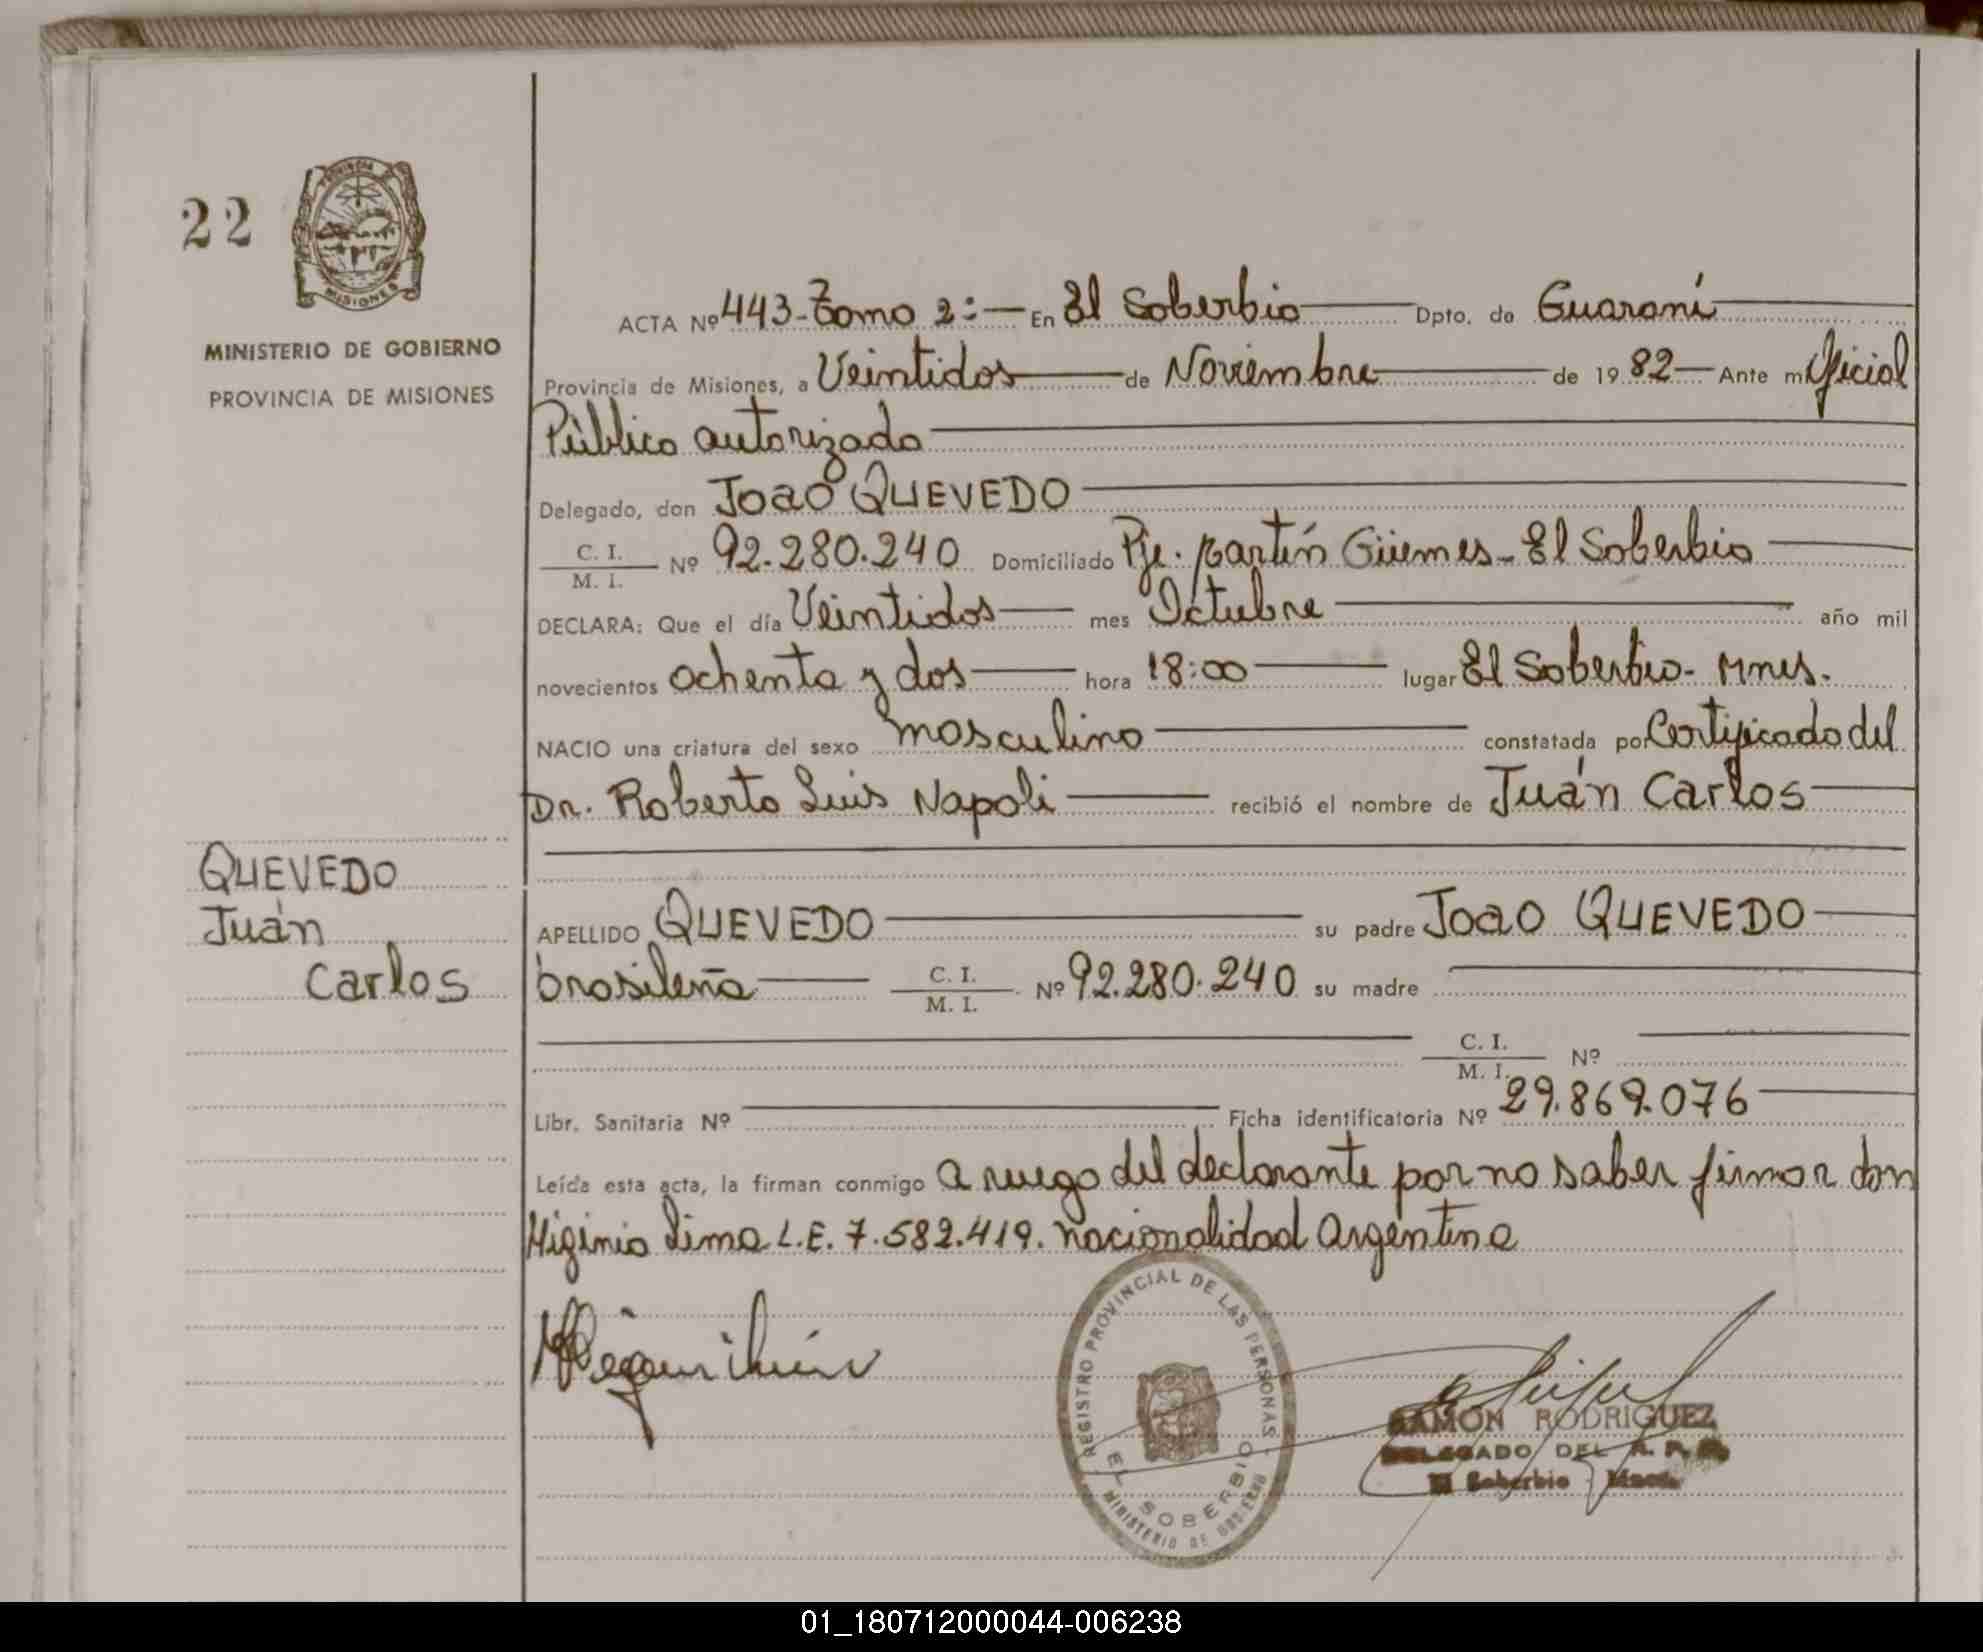 22
PROVINCIA
MISIONES
MINISTERIO DE GOBIERNO
PROVINCIA DE MISIONES
ACTA Nº 443-Tomo 2:- En El Soberbio Dpto. de Guaraní
Provincia de Misiones, a Veintidos de Noviembre de 1982 Ante mí Oficial
Público autorizado
Delegado, don JOAO QUEVEDO
C. I. / M. I. Nº 92.280.240 Domiciliado Pje. Martín Güemes-El Soberbio
DECLARA: Que el día Veintidos mes Octubre año mil
novecientos ochenta y dos hora 18:00 lugar El Soberbio- Mnes.
NACIO una criatura del sexo masculino constatada por Certificado del
Dr. Roberto Luis Napoli recibió el nombre de Juán Carlos
QUEVEDO
Juán
Carlos
APELLIDO QUEVEDO su padre JOAO QUEVEDO
brasileña C. I. / M. I. Nº 92.280.240 su madre
C. I. / M. I. Nº
Libr. Sanitaria Nº Ficha identificatoria Nº 29.869.076
Leída esta acta, la firman conmigo a ruego del declarante por no saber firmar don
Higinio Lima L.E. 7.582.419. nacionalidad Argentina
REGISTRO PROVINCIAL DE LAS PERSONAS
EL SOBERBIO
MINISTERIO DE GOBIERNO
RAMON RODRIGUEZ
DELEGADO DEL R. P. P.
El Soberbio - Mnes.
01_180712000044-006238